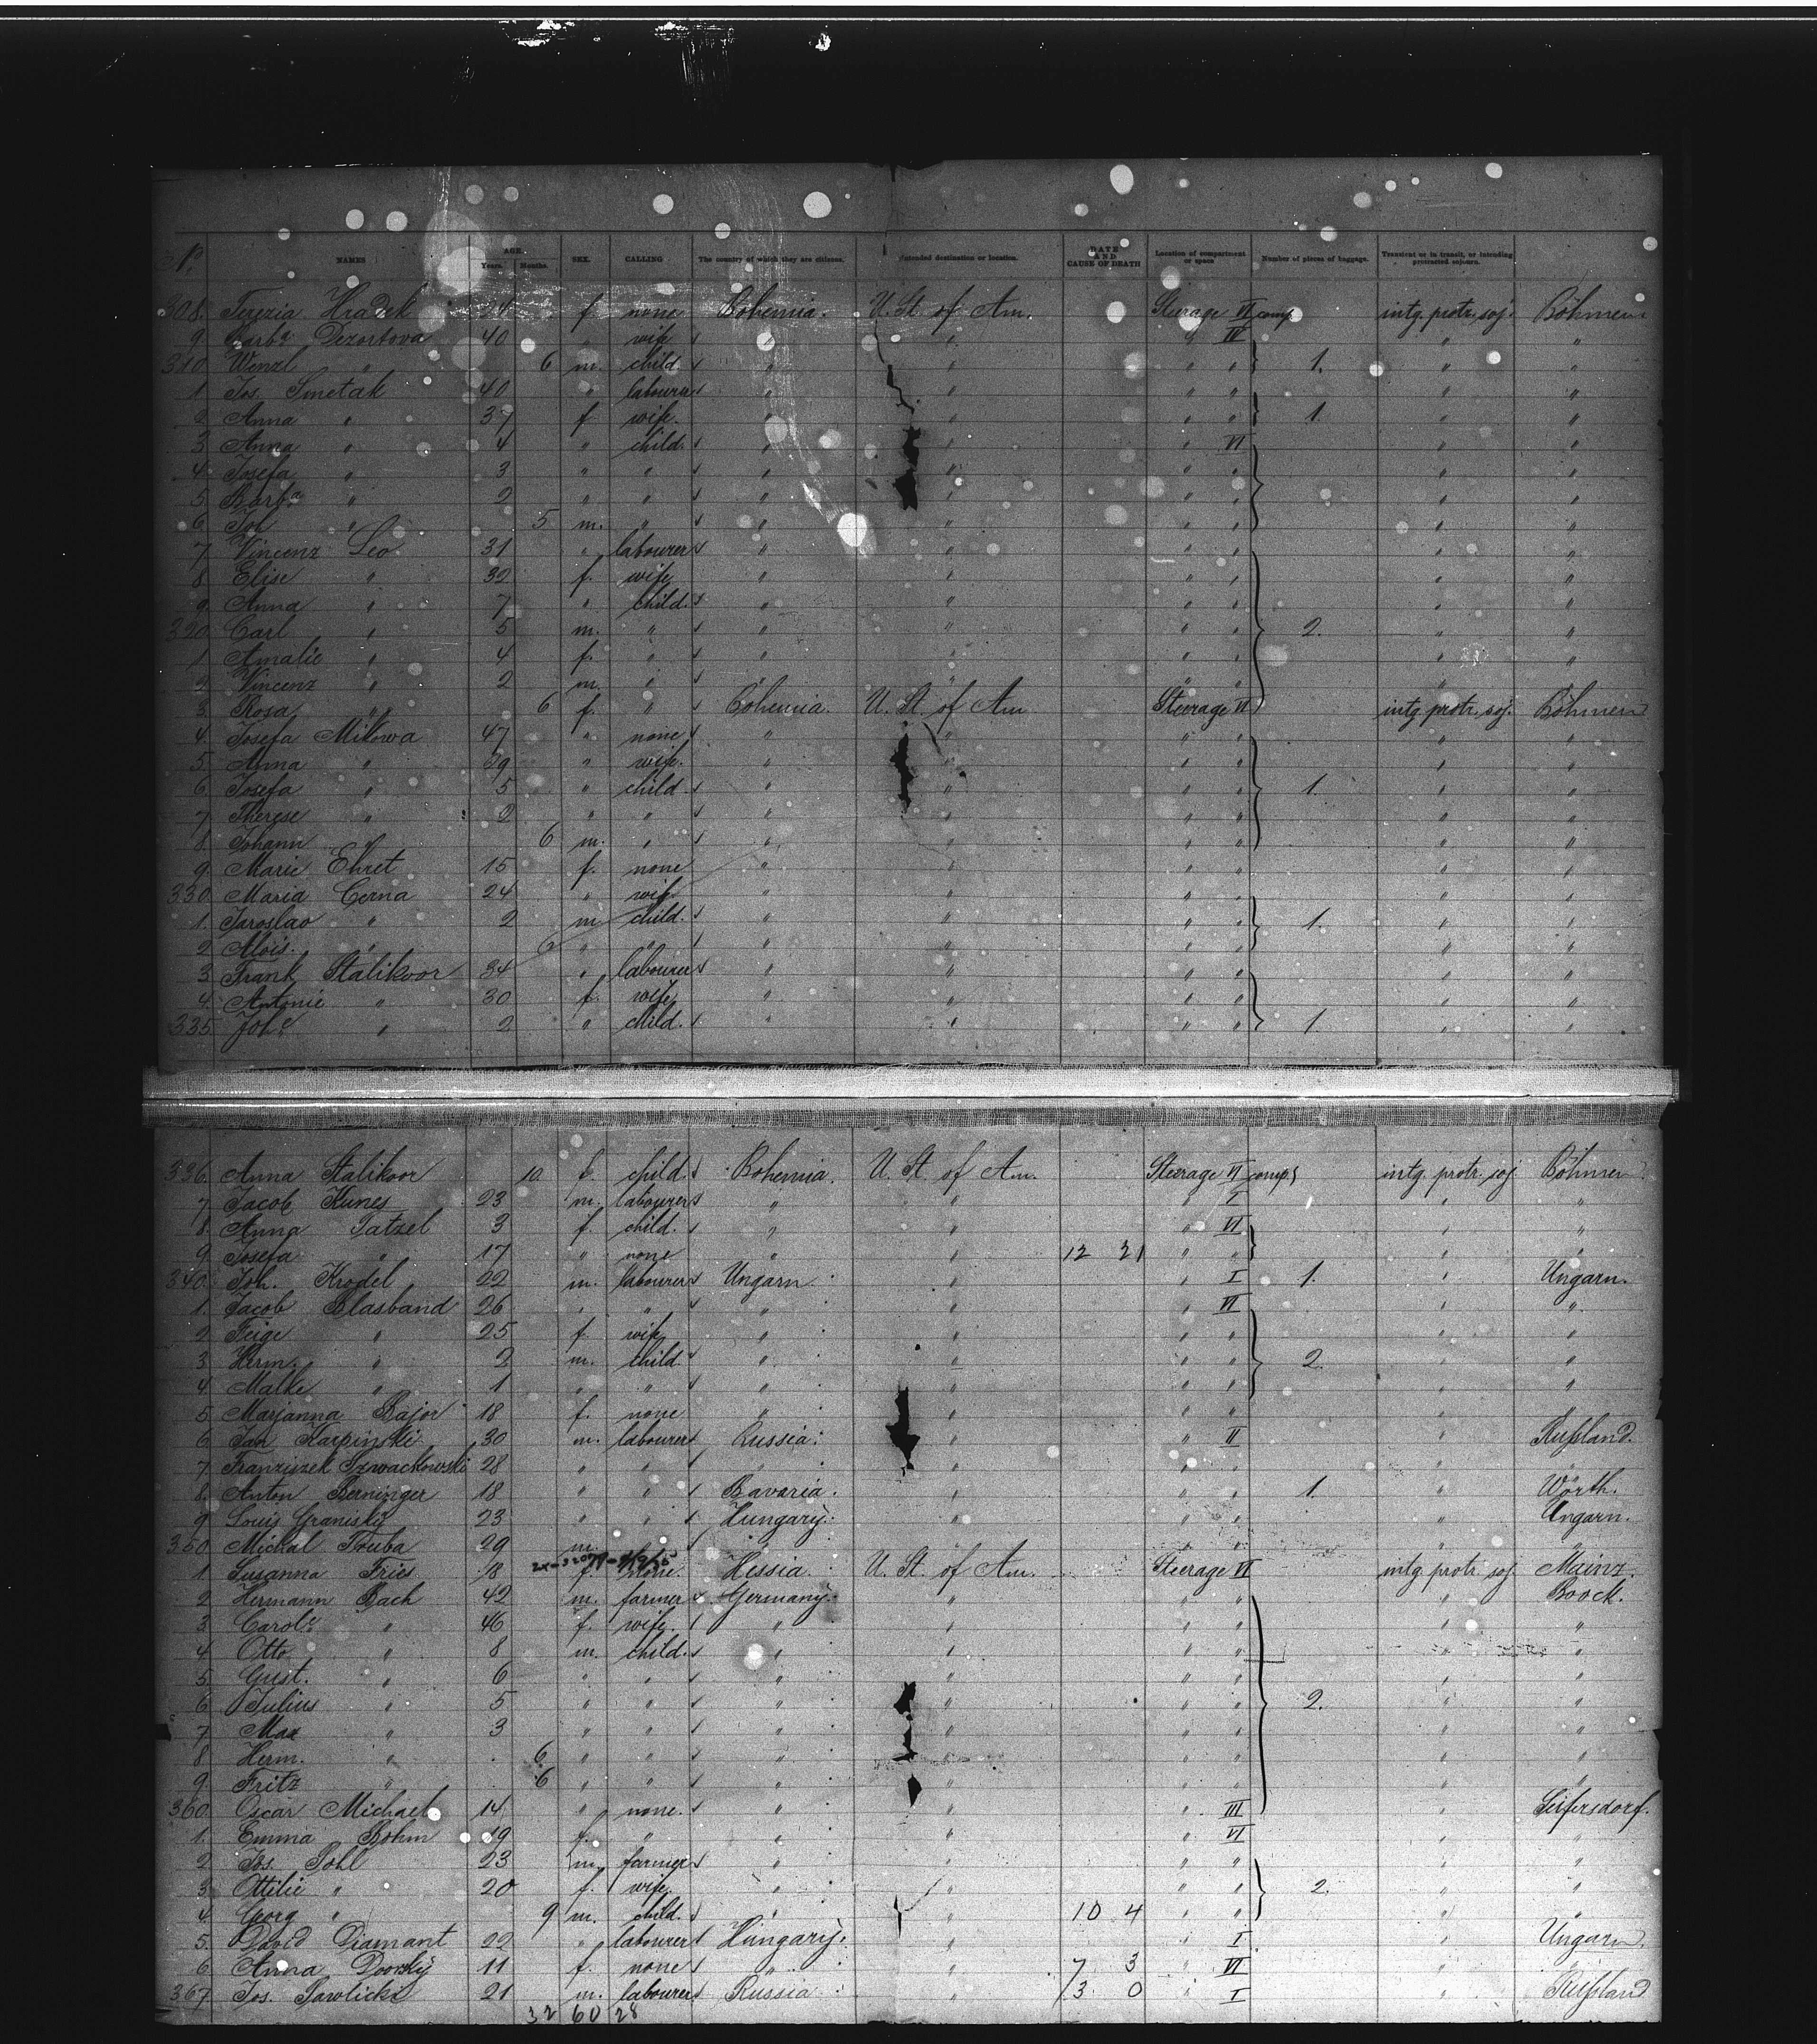 No. NAMES AGE. Years. Months. SEX. CALLING The country of which they are citizens. Intended destination or location. DATE AND CAUSE OF DEATH Location of compartment or space Number of pieces of baggage. Transient or in transit, or intending protracted sojourn.
308. Terezia Hradek 24 f. none Bohemia. U. St. of Am. Steerage VI comp intg. protr. soj. Böhmen
9. Barba Dezortova 40 " wife " " " IV " "
310. Wenzl " 6 m. child " " " " 1. " "
1. Jos. Smetak 40 " labourer " " " " " "
2. Anna " 37 f wife. " " " " 1. " "
3. Anna " 4 " child. " " " VI " "
4. Josefa " 3 " " " " " " " "
5. Barba " 2 " " " " " " " "
6. Joh " 5 m. " " " " " " "
7. Vincenz Leo. 31 " labourer " " " " " "
8. Elise " 32 f. wife " " " " " "
9. Anna " 7 " child. " " " " " "
320. Carl " 5 m. " " " " " 2. " "
1. Amalie " 4 f. " " " " " " "
2. Vincenz " 2 m. " " " " " " "
3. Rosa " 6 f. " Bohemia. U. St. of Am Steerage VI intg. protr. soj. Böhmen
4. Josefa Mikowa 47 " none " " " " " "
5. Anna " 29 " wife. " " " " " "
6. Josefa " 5 " child " " " " 1. " "
7. Therese " 2 " " " " " " " "
8. Johann " 6 m. " " " " " " "
9. Marie Ehret 15 f. none " " " " " "
330. Maria Cerna 24 " wife " " " " " "
1. Jaroslav " 2 m child. " " " " 1. " "
2. Alois. " 6 " " " " " " " "
3. Frank Stalikvor 34 " labourer " " " " " "
4. Antonie " 30 f. wife " " " " " "
335. Johe " 2 " child. " " " " 1. " "
336. Anna Stalikvor 10. f. child. Bohemia. U. St. of Am. Steerage VI comp. intg. protr. soj. Böhmen
7. Jacob Kunes 23 m. labourer " " " I " "
8. Anna Patzel 3 f. child. " " " VI " "
9. Josefa " 17 " none " " 12 21 " " " "
340. Joh. Krodel 22 m. labourer Ungarn. " " I 1. " Ungarn.
1. Jacob Blasband 26 " " " " " VI " "
2. Feige " 25 f. wife " " " " " "
3. Herm. " 2 m. child " " " " 2. " "
4. Malke " 1 " " " " " " " "
5. Marjanna Bajor 18 f. none " " " " " "
6. Jan Karpinski 30 m. labourer Russia. " " II " Rußland.
7. Franziszek Szwackowski 28 " " " " " " " "
8. Anton Berninger 18 " " Bavaria. " " " 1. " Wörth.
9. Louis Granisky 23 " " Hungary. " " " " Ungarn.
350. Michal Truba 29 m. " " " " " " "
1. Susanna Fries 18 f. none. Hessia. U. St. of Am. Steerage VI intg. protr. soj. Mainz.
2. Hermann Bach 42 m. farmer Germany. " " " " Boock.
3. Carole " 46 f. wife. " " " " " "
4. Otto " 8 m. child. " " " " " "
5. Gust. " 6 " " " " " " " "
6. Julius " 5 " " " " " " 2. " "
7. Max " 3 " " " " " " " "
8. Herm. " 6 " " " " " " " "
9. Fritz " 6 " " " " " " " "
360. Oscar Michael 14 " none. " " " III " Seifersdorf.
1. Emma Böhm 19 f. " " " " VI " "
2. Jos. Pohl 23 m. farmer " " " " " "
3. Ottilie " 20 f. wife. " " " " 2. " "
4. Georg " 9 m. child. " " 10 4 " " " "
5. David Diamant 22 " labourer Hungary. " " I " Ungarn.
6. Anna Dvorsky 11 f. none " " 7 3 " VI " "
367. Jos. Pawlicki 21 m. labourer Russia " 3 0 " I " Rußland
32 60 28